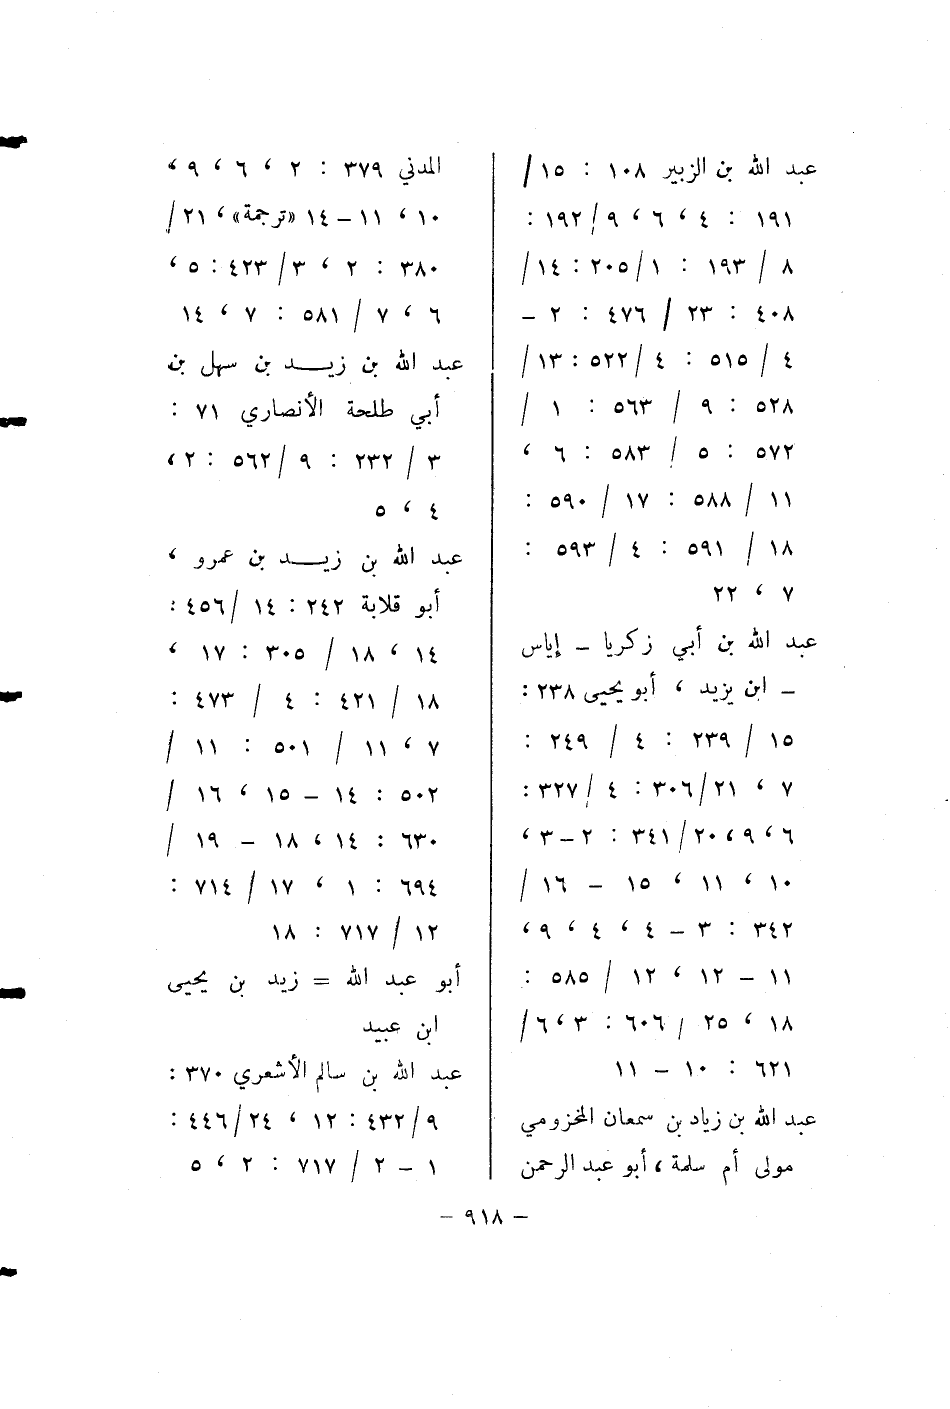 عبد الله بن الزبير ١٠٨ : ١٥/
١٩١ : ٤ ، ٦ ، ٩/١٩٢ :
٨ / ١٩٣ : ١/٢٠٥ : ١٤/
٤٠٨ : ٢٣ / ٤٧٦ : ٢ –
٤ / ٥١٥ : ٤ /٥٢٢ : ١٣/
٥٢٨ : ٩ / ٥٦٣ : ١ /
٥٧٢ : ٥ / ٥٨٣ : ٦ ،
١١ / ٥٨٨ : ١٧ / ٥٩٠ :
١٨ / ٥٩١ : ٤ / ٥٩٣ :
٧ ، ٢٢
عبد الله بن أبي زكريا – إياس
– ابن يزيد ، أبو يحيى ٢٣٨ :
١٥ / ٢٣٩ : ٤ / ٢٤٩ :
٧ ، ٢١/٣٠٦ : ٤ /٣٢٧ :
٦ ، ٩ ، ٢٠/٣٤١ : ٢–٣ ،
١٠ ، ١١ ، ١٥ – ١٦ /
٣٤٢ : ٣ – ٤ ، ٤ ، ٩ ،
١١ – ١٢ ، ١٢ / ٥٨٥ :
١٨ ، ٢٥ / ٦٠٦ : ٣ ، ٦/
٦٢١ : ١٠ – ١١
عبد الله بن زياد بن سمعان المخزومي
مولى أم سلمة ، أبو عبد الرحمن
المدني ٣٧٩ : ٢ ، ٦ ، ٩ ،
١٠ ، ١١ – ١٤ «ترجمة» ، ٢١/
٣٨٠ : ٢ ، ٣ /٤٢٣ : ٥ ،
٦ ، ٧ / ٥٨١ : ٧ ، ١٤
عبد الله بن زيـــد بن سهل بن
أبي طلحة الأنصاري ٧١ :
٣ / ٢٣٢ : ٩ /٥٦٢ : ٢ ،
٤ ، ٥
عبد الله بن زيـــد بن عمرو ،
أبو قلابة ٢٤٢ : ١٤ /٤٥٦ :
١٤ ، ١٨ / ٣٠٥ : ١٧ ،
١٨ / ٤٢١ : ٤ / ٤٧٣ :
٧ ، ١١ / ٥٠١ : ١١ /
٥٠٢ : ١٤ – ١٥ ، ١٦ /
٦٣٠ : ١٤ ، ١٨ – ١٩ /
٦٩٤ : ١ ، ١٧ / ٧١٤ :
١٢ / ٧١٧ : ١٨
أبو عبد الله = زيد بن يحيى
ابن عبيد
عبد الله بن سالم الأشعري ٣٧٠ :
٩/٤٣٢ : ١٢ ، ٢٤/٤٤٦ :
١ – ٢ / ٧١٧ : ٢ ، ٥
– ٩١٨ –